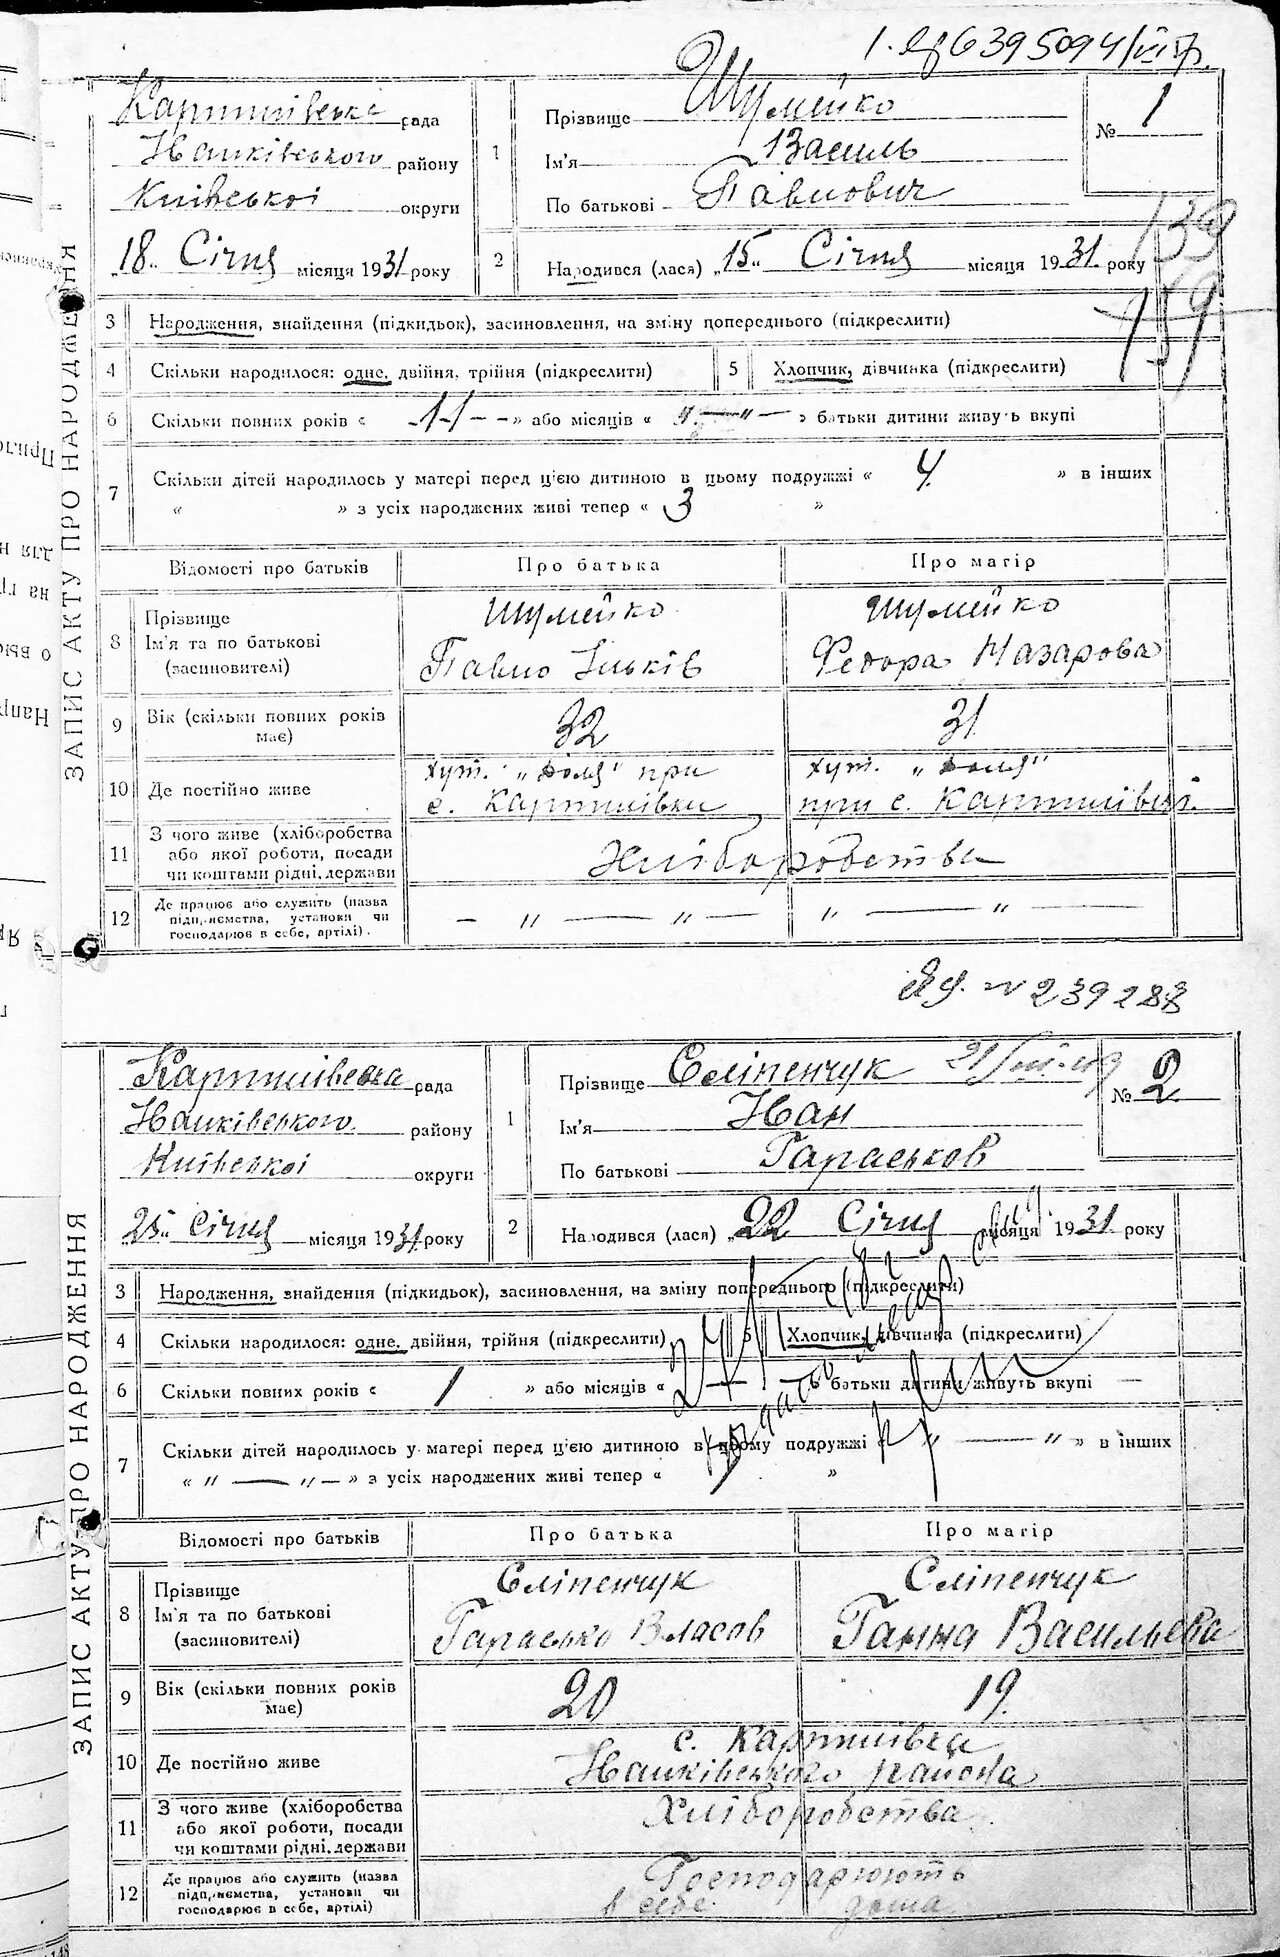 Шумейко
№ 1
Картилівська рада
Іванківського району
Київської округи
18 Січня місяця 1931 року
1 Прізвище Шумейко
Ім'я Василь
По батькові Павлович
2 Народився (лася) „15" Січня місяця 1931 року
139
159
ЗАПИС АКТУ ПРО НАРОДЖЕННЯ
3 Народження, знайдення (підкидьок), засиновлення, на зміну попереднього (підкреслити)
4 Скільки народилося: одне, двійня, трійня (підкреслити) 5 Хлопчик, дівчинка (підкреслити)
6 Скільки повних років « 11 – – » або місяців « " — " — » батьки дитини живуть вкупі
7 Скільки дітей народилось у матері перед ц'єю дитиною в цьому подружжі « 4 » в інших
« » з усіх народжених живі тепер « 3 »
Відомості про батьків Про батька Про матір
8 Прізвище Шумейко Шумейко
Ім'я та по батькові Павло Ільків Федора Назарова
(засиновителі)
9 Вік (скільки повних років має) 32 31
10 Де постійно живе хут. „Воля" при хут. „Воля"
с. Картилівки при с. Картилівці
11 З чого живе (хліборобства
або якої роботи, посади Хліборобства
чи коштами рідні, держави
12 Де працює або служить (назва
підприємства, установи чи – " — " — " — " —
господарює в себе, артілі).
№ 239288
Картилівська рада
Іванківського району
Київської округи
25 Січня місяця 1931 року
1 Прізвище Сліпенчук
№ 2
Ім'я Іван
По батькові Гараськов
2 Народився (лася) „22 Січня місяця 1931 року
ЗАПИС АКТУ ПРО НАРОДЖЕННЯ
3 Народження, знайдення (підкидьок), засиновлення, на зміну попереднього (підкреслити)
4 Скільки народилося: одне, двійня, трійня (підкреслити) 5 Хлопчик, дівчинка (підкреслити)
6 Скільки повних років « 1 » або місяців « — » батьки дитини живуть вкупі —
7 Скільки дітей народилось у матері перед ц'єю дитиною в цьому подружжі « " — " » в інших
« " — " — » з усіх народжених живі тепер « »
Відомості про батьків Про батька Про матір
8 Прізвище Сліпенчук Сліпенчук
Ім'я та по батькові Гарасько Власов Ганна Васильева
(засиновителі)
9 Вік (скільки повних років має) 20 19
10 Де постійно живе с. Картилівка
Іванківського района
11 З чого живе (хліборобства
або якої роботи, посади Хліборобства
чи коштами рідні, держави
12 Де працює або служить (назва
підприємства, установи чи Господарюють
господарює в себе, артілі) в себе дома